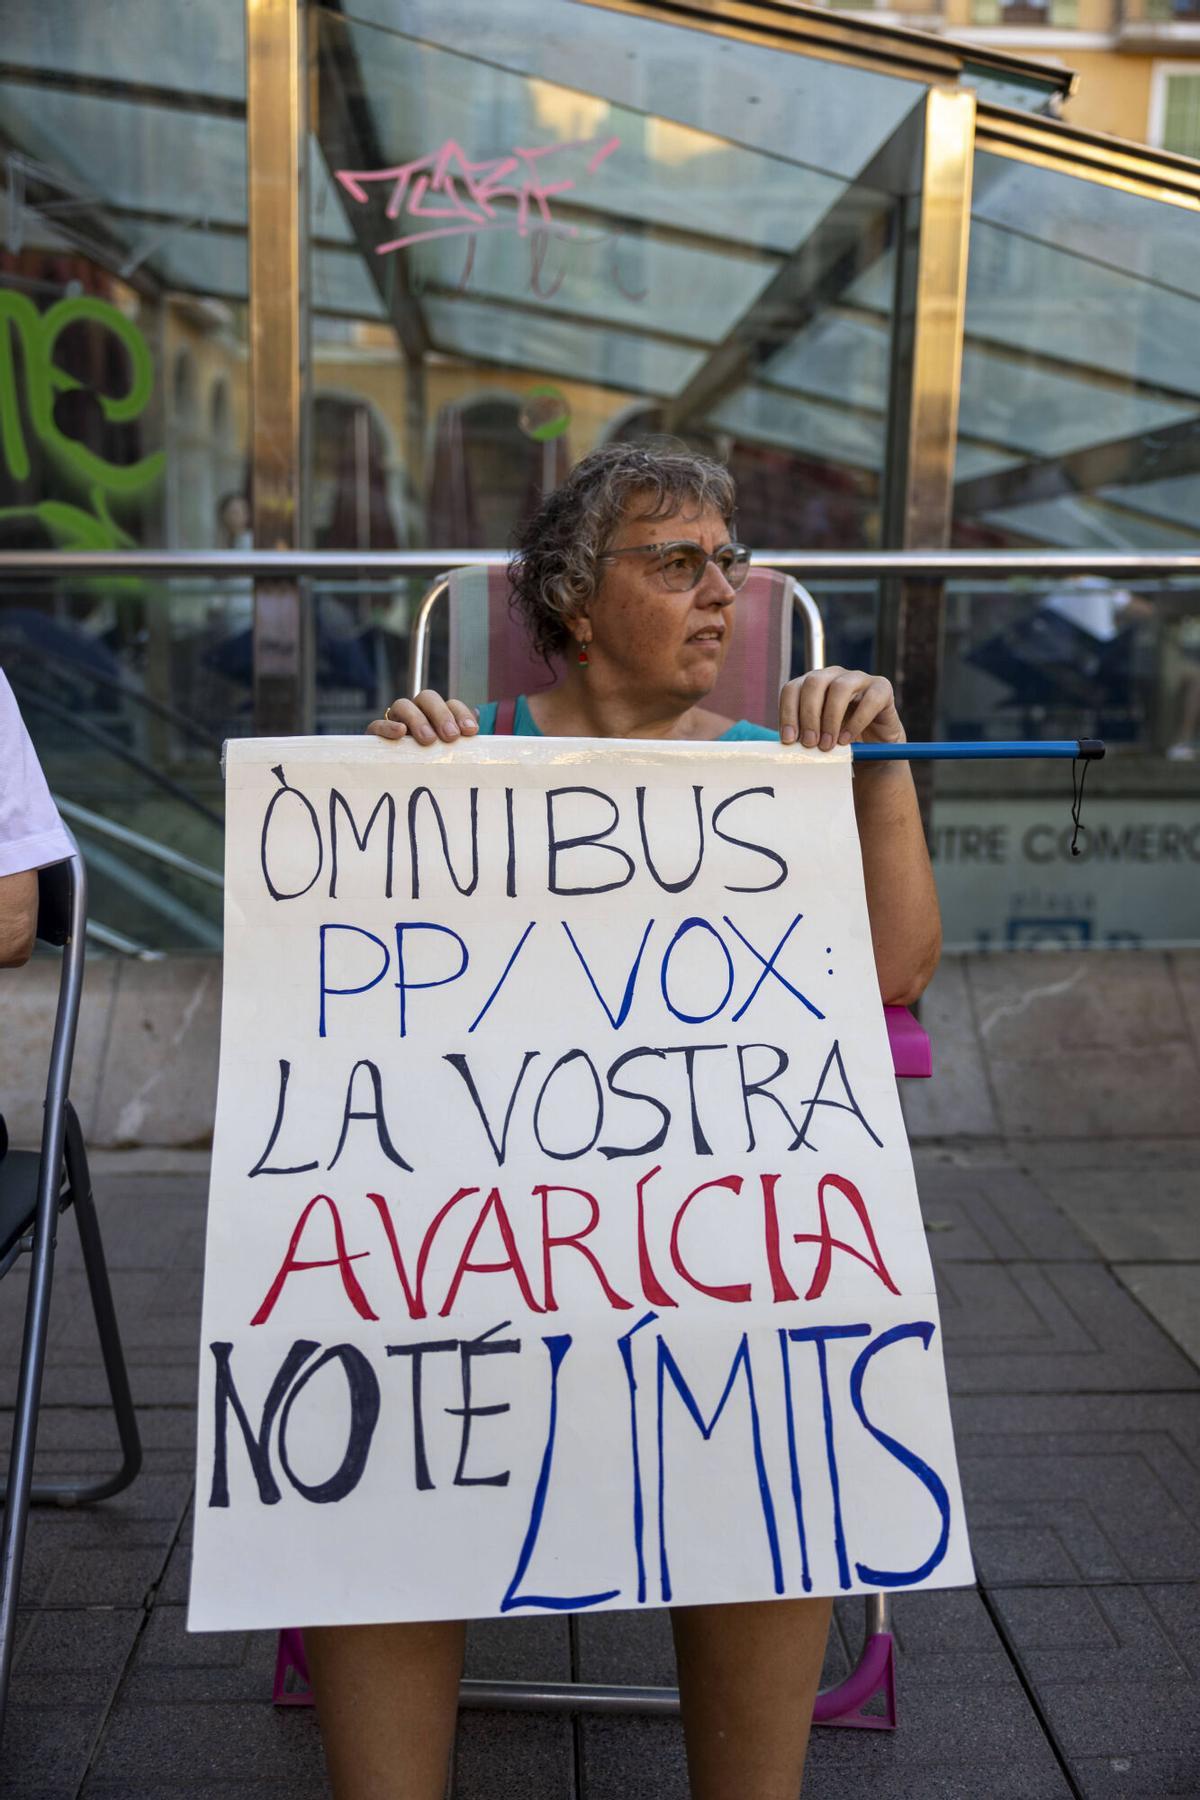 ÒMNIBUS
PP/VOX:
LA VOSTRA
AVARÍCIA
NO TÉ LÍMITS
NTRE COMERC
plaça